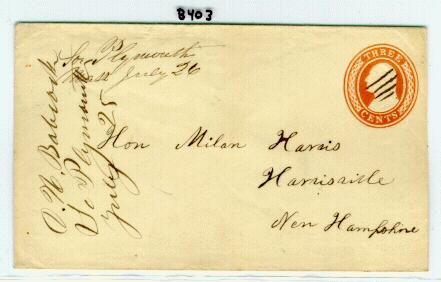 8403
So Plymouth
Mass July 26
THREE
CENTS
O. W. Babcock
So Plymouth
July 25
Hon Milan Harris
Harrisville
New Hampshire